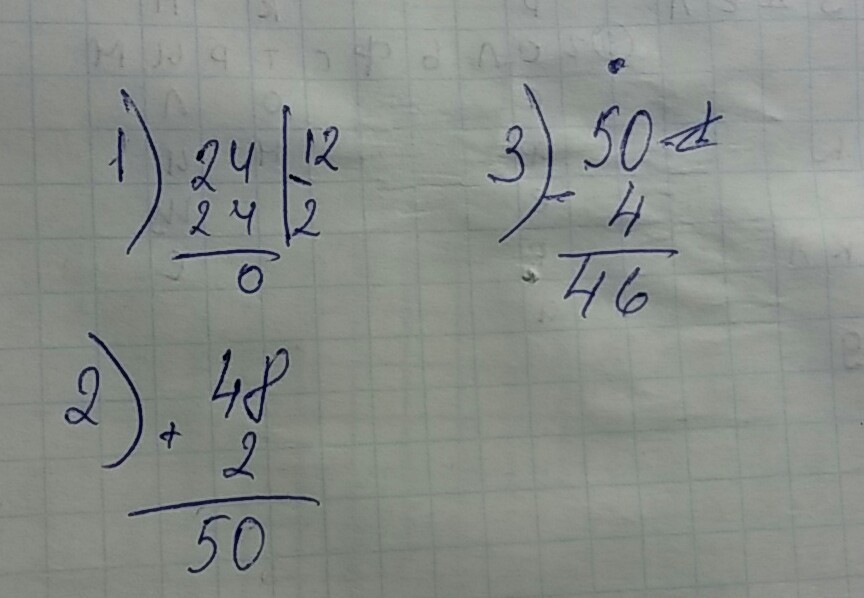 1) 24 | 12
24 | 2
0
2) + 48
2
50
3) - 50
4
46